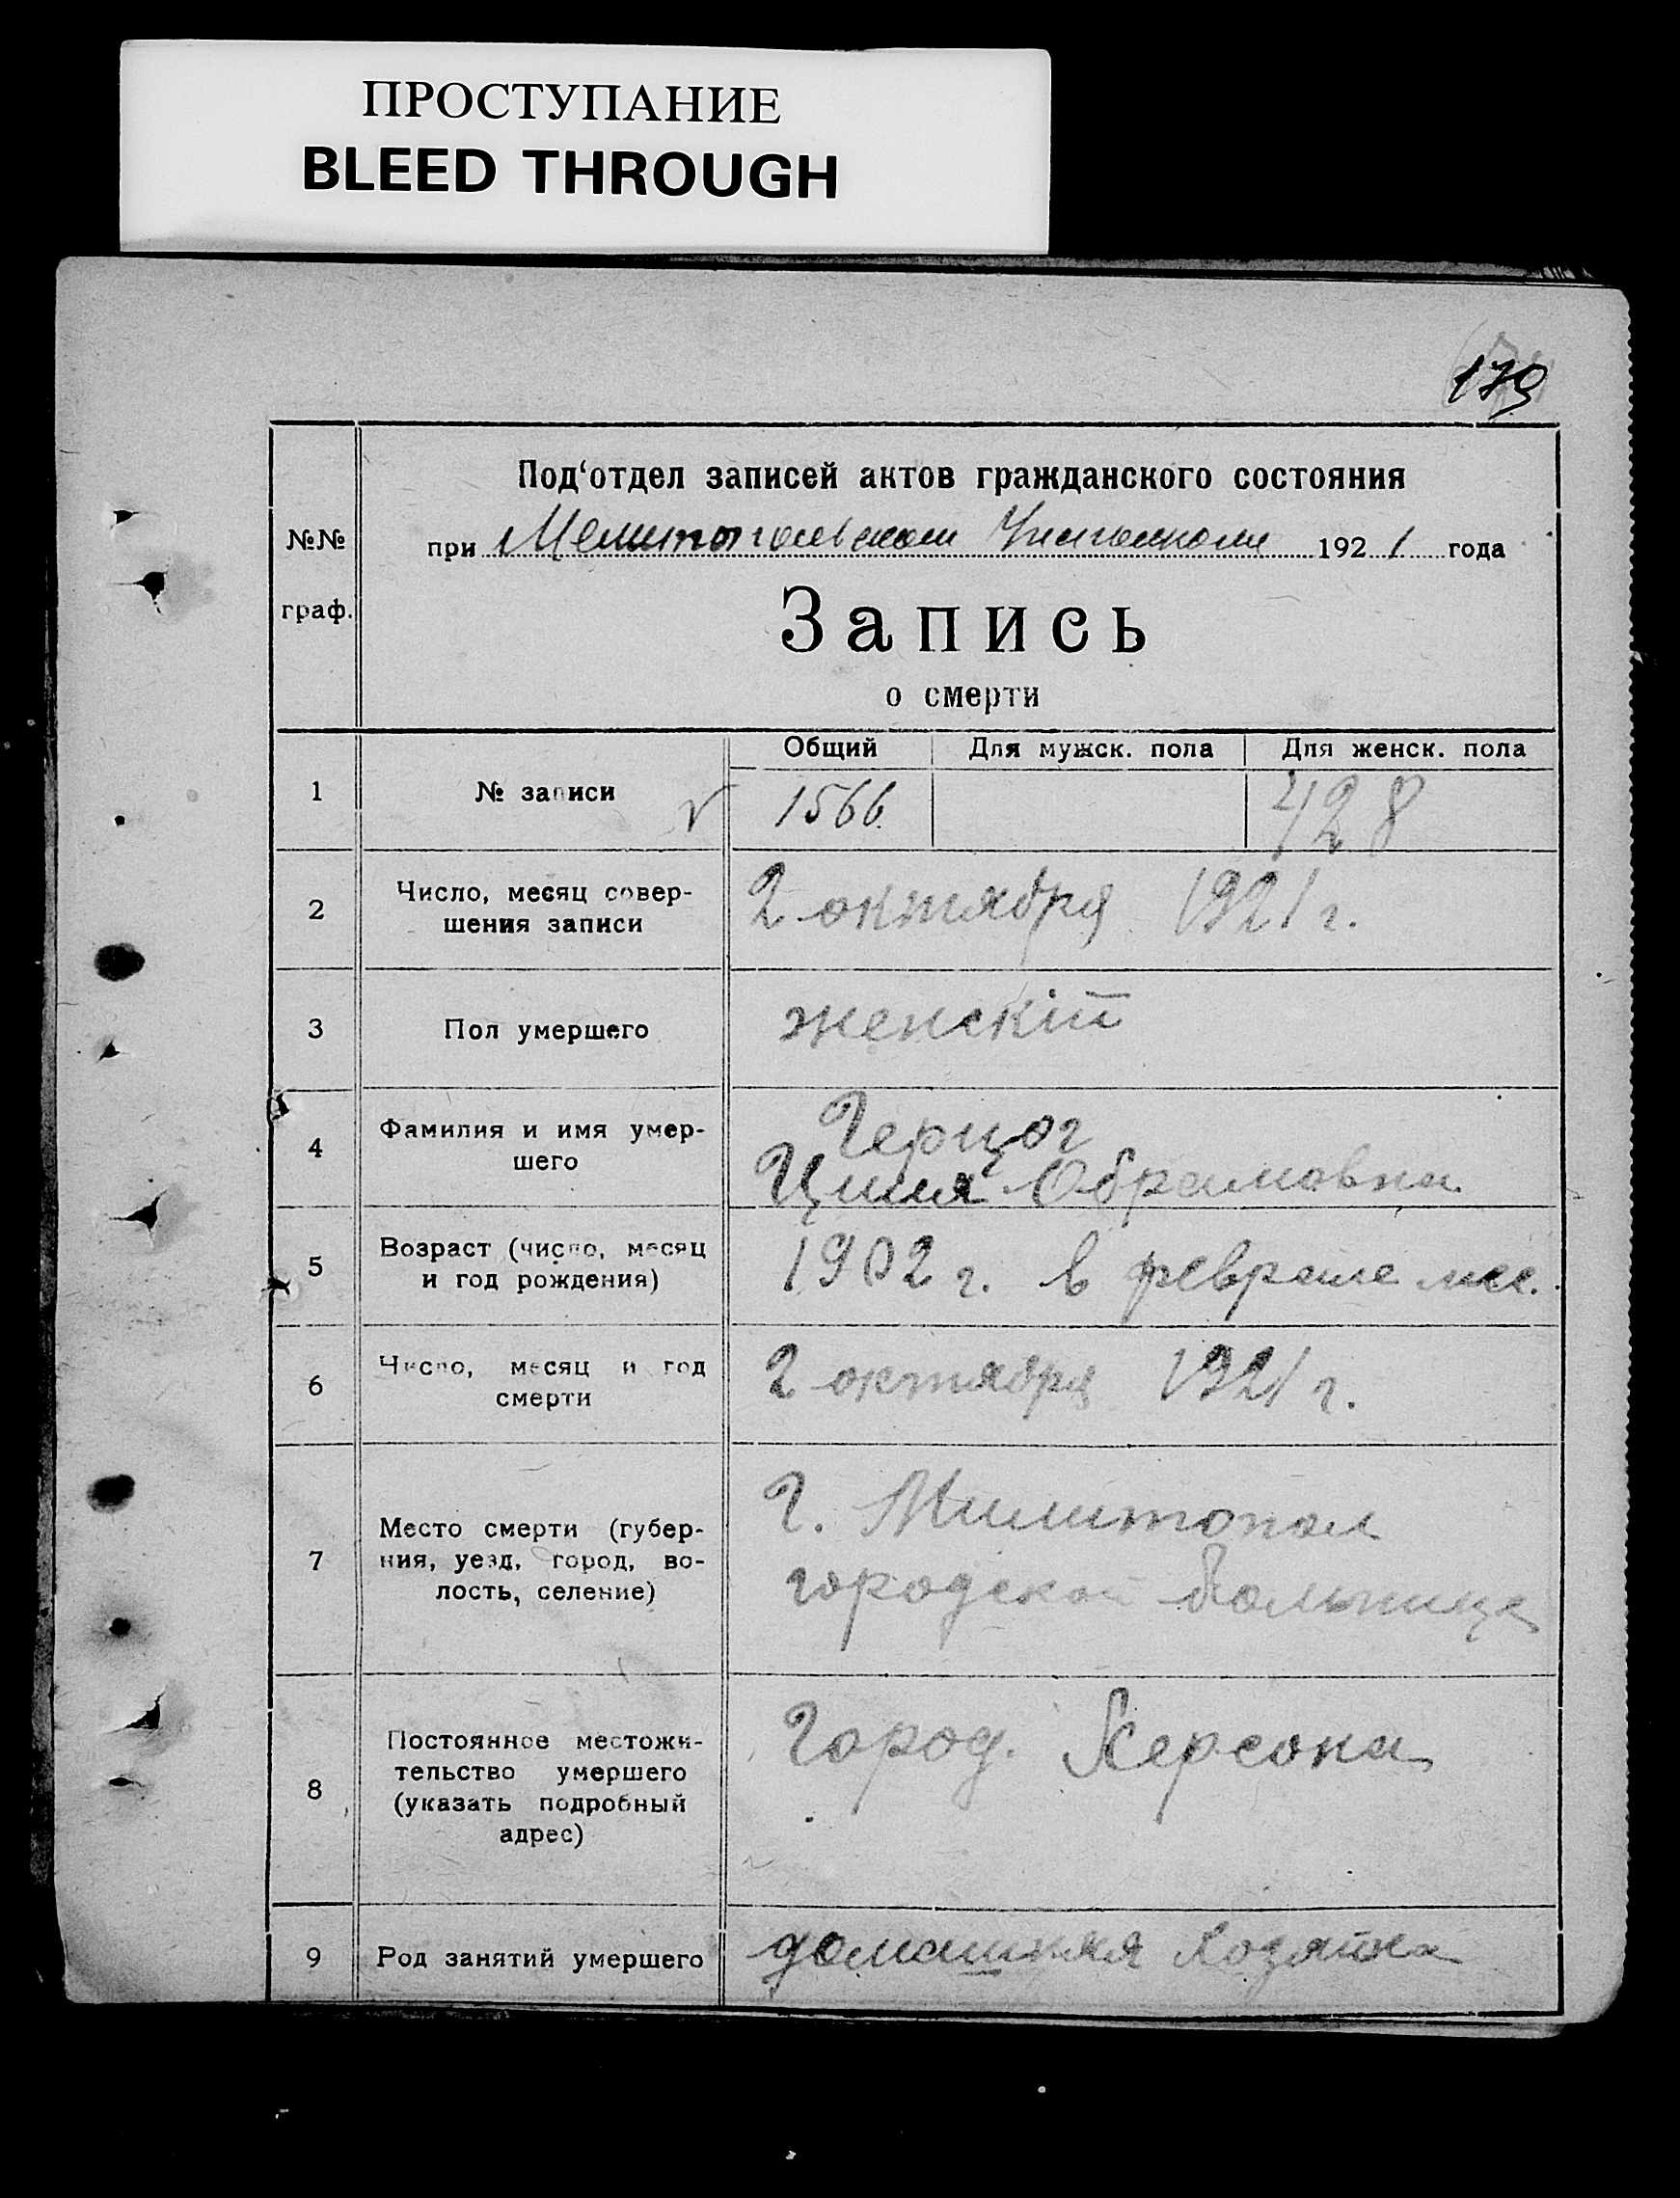 ПРОСТУПАНИЕ
BLEED THROUGH
179
Под‘отдел записей актов гражданского состояния
№№
граф.
при Мелитопольском 1921 года
Запись
о смерти
Общий Для мужск. пола Для женск. пола
1 № записи √ 1566. 428
2 Число, месяц совер-
шения записи
2 октября 1921 г.
3 Пол умершего женскій
4 Фамилия и имя умер-
шего
Герцог
Циля Обрамовна
5 Возраст (число, месяц
и год рождения)
1902 г. в феврале мес.
6 Число, месяц и год
смерти
2 октября 1921 г.
7 Место смерти (губер-
ния, уезд, город, во-
лость, селение)
Г. Милитопол
городской больнице
8 Постоянное местожи-
тельство умершего
(указать подробный
адрес)
Город. Херсона
9 Род занятий умершего домашняя хозяйка